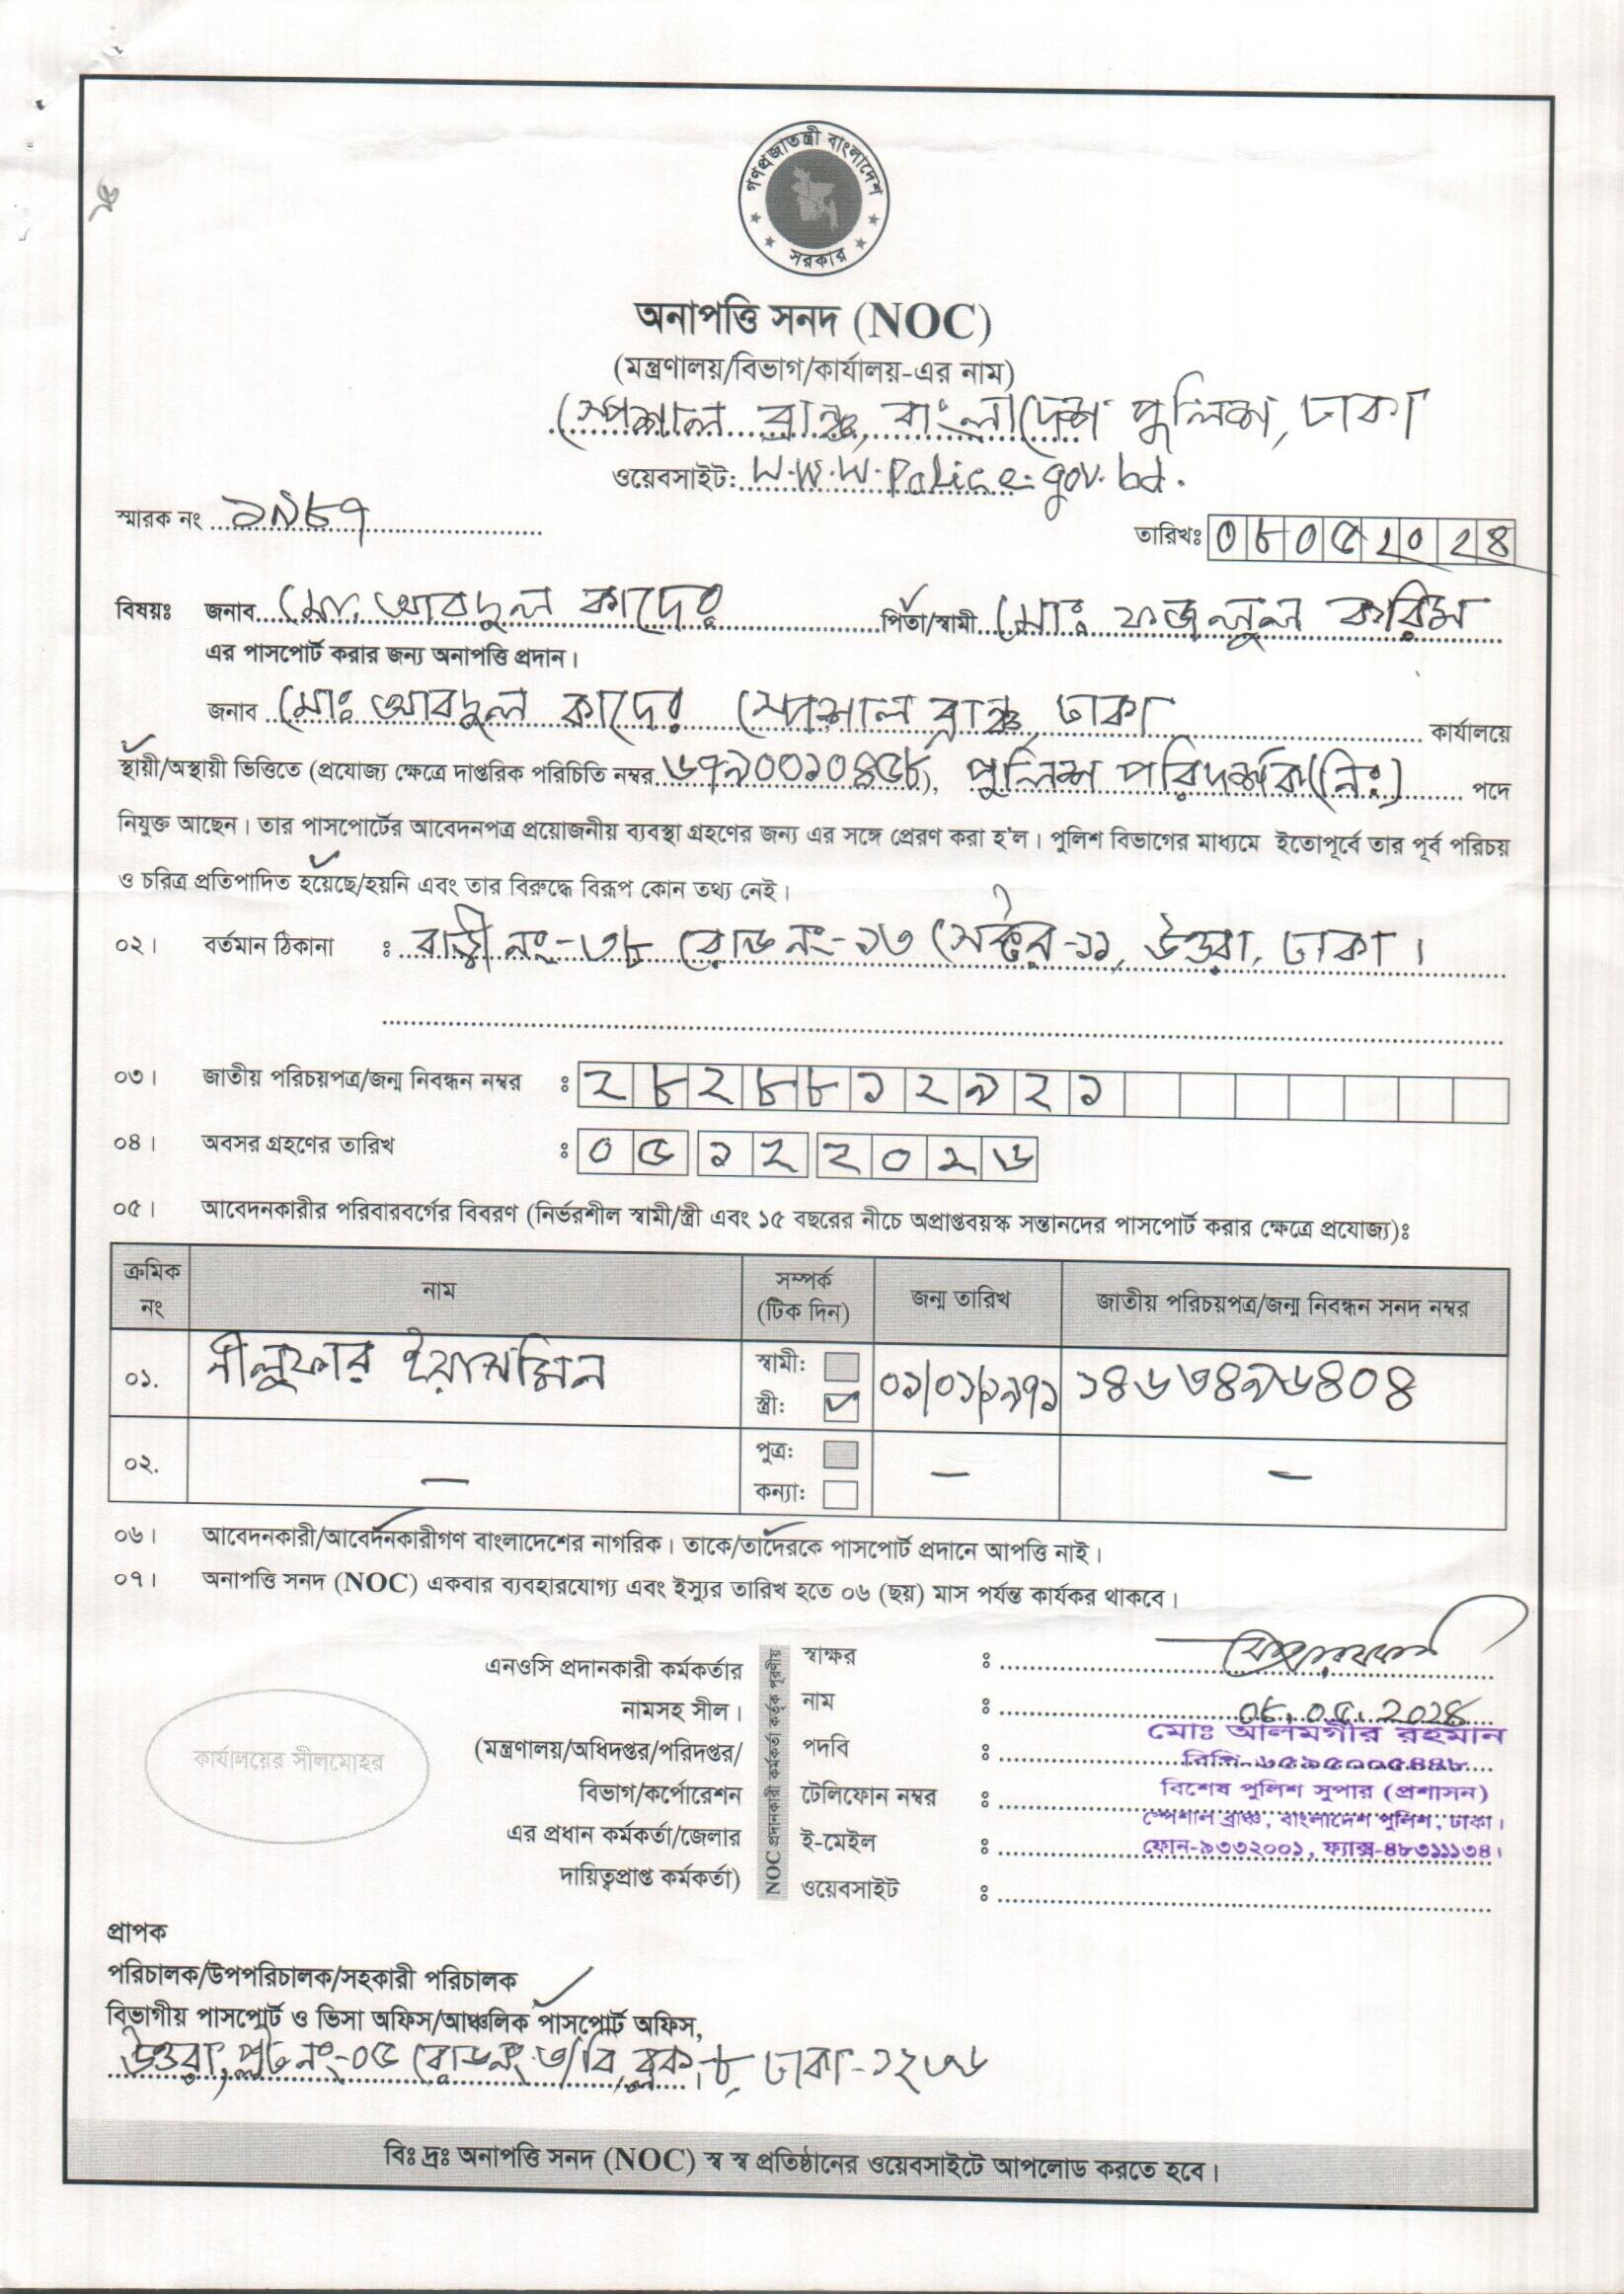 গণপ্রজাতন্ত্রী বাংলাদেশ
সরকার
অনাপত্তি সনদ (NOC)
(মন্ত্রণালয়/বিভাগ/কার্যালয়-এর নাম)
স্পেশাল ব্রাঞ্চ, বাংলাদেশ পুলিশ, ঢাকা
ওয়েবসাইট: W.W.W.Police.gov.bd.
স্মারক নং ১৯৮৭
তারিখঃ ০৮০৫২০২৪
বিষয়ঃ জনাব মোঃ আবদুল কাদের পিতা/স্বামী মোঃ ফজলুল করিম
এর পাসপোর্ট করার জন্য অনাপত্তি প্রদান।
জনাব মোঃ আবদুল কাদের স্পেশাল ব্রাঞ্চ ঢাকা কার্যালয়ে
স্থায়ী/অস্থায়ী ভিত্তিতে (প্রযোজ্য ক্ষেত্রে দাপ্তরিক পরিচিতি নম্বর ৬৭৯০০১০৪৫৮), পুলিশ পরিদর্শক(নিঃ) পদে
নিযুক্ত আছেন। তার পাসপোর্টের আবেদনপত্র প্রয়োজনীয় ব্যবস্থা গ্রহণের জন্য এর সঙ্গে প্রেরণ করা হ'ল। পুলিশ বিভাগের মাধ্যমে ইতোপূর্বে তার পূর্ব পরিচয়
ও চরিত্র প্রতিপাদিত হয়েছে/হয়নি এবং তার বিরুদ্ধে বিরূপ কোন তথ্য নেই।
০২। বর্তমান ঠিকানা ঃ বাড়ী নং-৩৮ রোড নং-১৩ সেক্টর-১১, উত্তরা, ঢাকা।
০৩। জাতীয় পরিচয়পত্র/জন্ম নিবন্ধন নম্বর ঃ ২৮২৮৮১২৯২১
০৪। অবসর গ্রহণের তারিখ ঃ ০৫ ১২ ২০২৬
০৫। আবেদনকারীর পরিবারবর্গের বিবরণ (নির্ভরশীল স্বামী/স্ত্রী এবং ১৫ বছরের নীচে অপ্রাপ্তবয়স্ক সন্তানদের পাসপোর্ট করার ক্ষেত্রে প্রযোজ্য)ঃ
ক্রমিক নং নাম সম্পর্ক (টিক দিন) জন্ম তারিখ জাতীয় পরিচয়পত্র/জন্ম নিবন্ধন সনদ নম্বর
০১. নীলুফার ইয়াসমিন স্বামী: স্ত্রী: ০১/০১/১৯৭১ ১৪৬৩৪৯৬৪০৪
০২. — পুত্র: কন্যা: — —
০৬। আবেদনকারী/আবেদনকারীগণ বাংলাদেশের নাগরিক। তাকে/তাদেরকে পাসপোর্ট প্রদানে আপত্তি নাই।
০৭। অনাপত্তি সনদ (NOC) একবার ব্যবহারযোগ্য এবং ইস্যুর তারিখ হতে ০৬ (ছয়) মাস পর্যন্ত কার্যকর থাকবে।
এনওসি প্রদানকারী কর্মকর্তার
নামসহ সীল।
(মন্ত্রণালয়/অধিদপ্তর/পরিদপ্তর/
বিভাগ/কর্পোরেশন
এর প্রধান কর্মকর্তা/জেলার
দায়িত্বপ্রাপ্ত কর্মকর্তা)
কার্যালয়ের সীলমোহর
NOC প্রদানকারী কর্মকর্তা কর্তৃক পূরণীয়
স্বাক্ষর ঃ
নাম ঃ ০৮.০৫.২০২৪
মোঃ আলমগীর রহমান
পদবি ঃ বিপি-৬৫৯৫০০৫৪৪৮
বিশেষ পুলিশ সুপার (প্রশাসন)
টেলিফোন নম্বর ঃ
স্পেশাল ব্রাঞ্চ, বাংলাদেশ পুলিশ, ঢাকা।
ই-মেইল ঃ ফোন-৯৩৩২০০১, ফ্যাক্স-৪৮৩১১১৩৪।
ওয়েবসাইট ঃ
প্রাপক
পরিচালক/উপপরিচালক/সহকারী পরিচালক
বিভাগীয় পাসপোর্ট ও ভিসা অফিস/আঞ্চলিক পাসপোর্ট অফিস,
উত্তরা, প্লট নং-০৫ রোড নং-৩/বি, ব্লক-৮, ঢাকা-১২৩৬
বিঃ দ্রঃ অনাপত্তি সনদ (NOC) স্ব স্ব প্রতিষ্ঠানের ওয়েবসাইটে আপলোড করতে হবে।